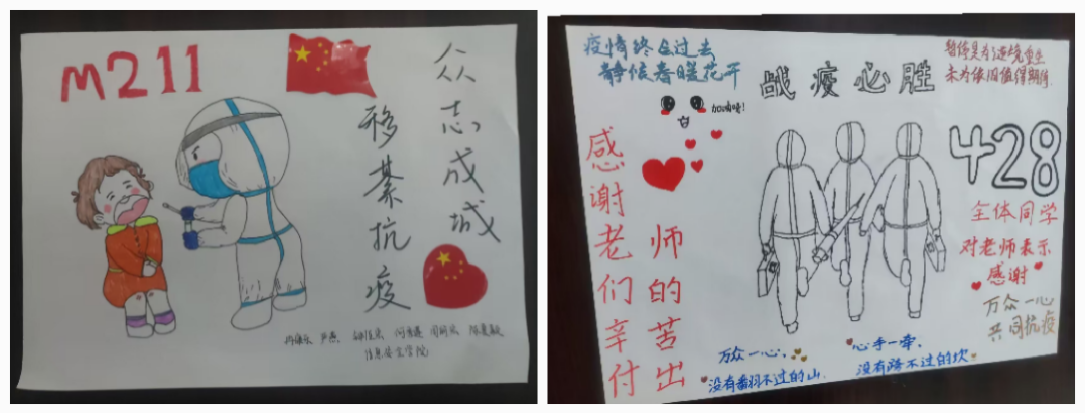 M211
众志成城
移綦抗疫
信息安全学院
疫情终会过去
静候春暖花开
战疫必胜
加油哦!
感谢老师
们的辛苦
付出
428
全体同学
对老师表示
感谢
万众一心
共同抗疫
万众一心,
没有翻不过的山
心手一牵,
没有跨不过的坎